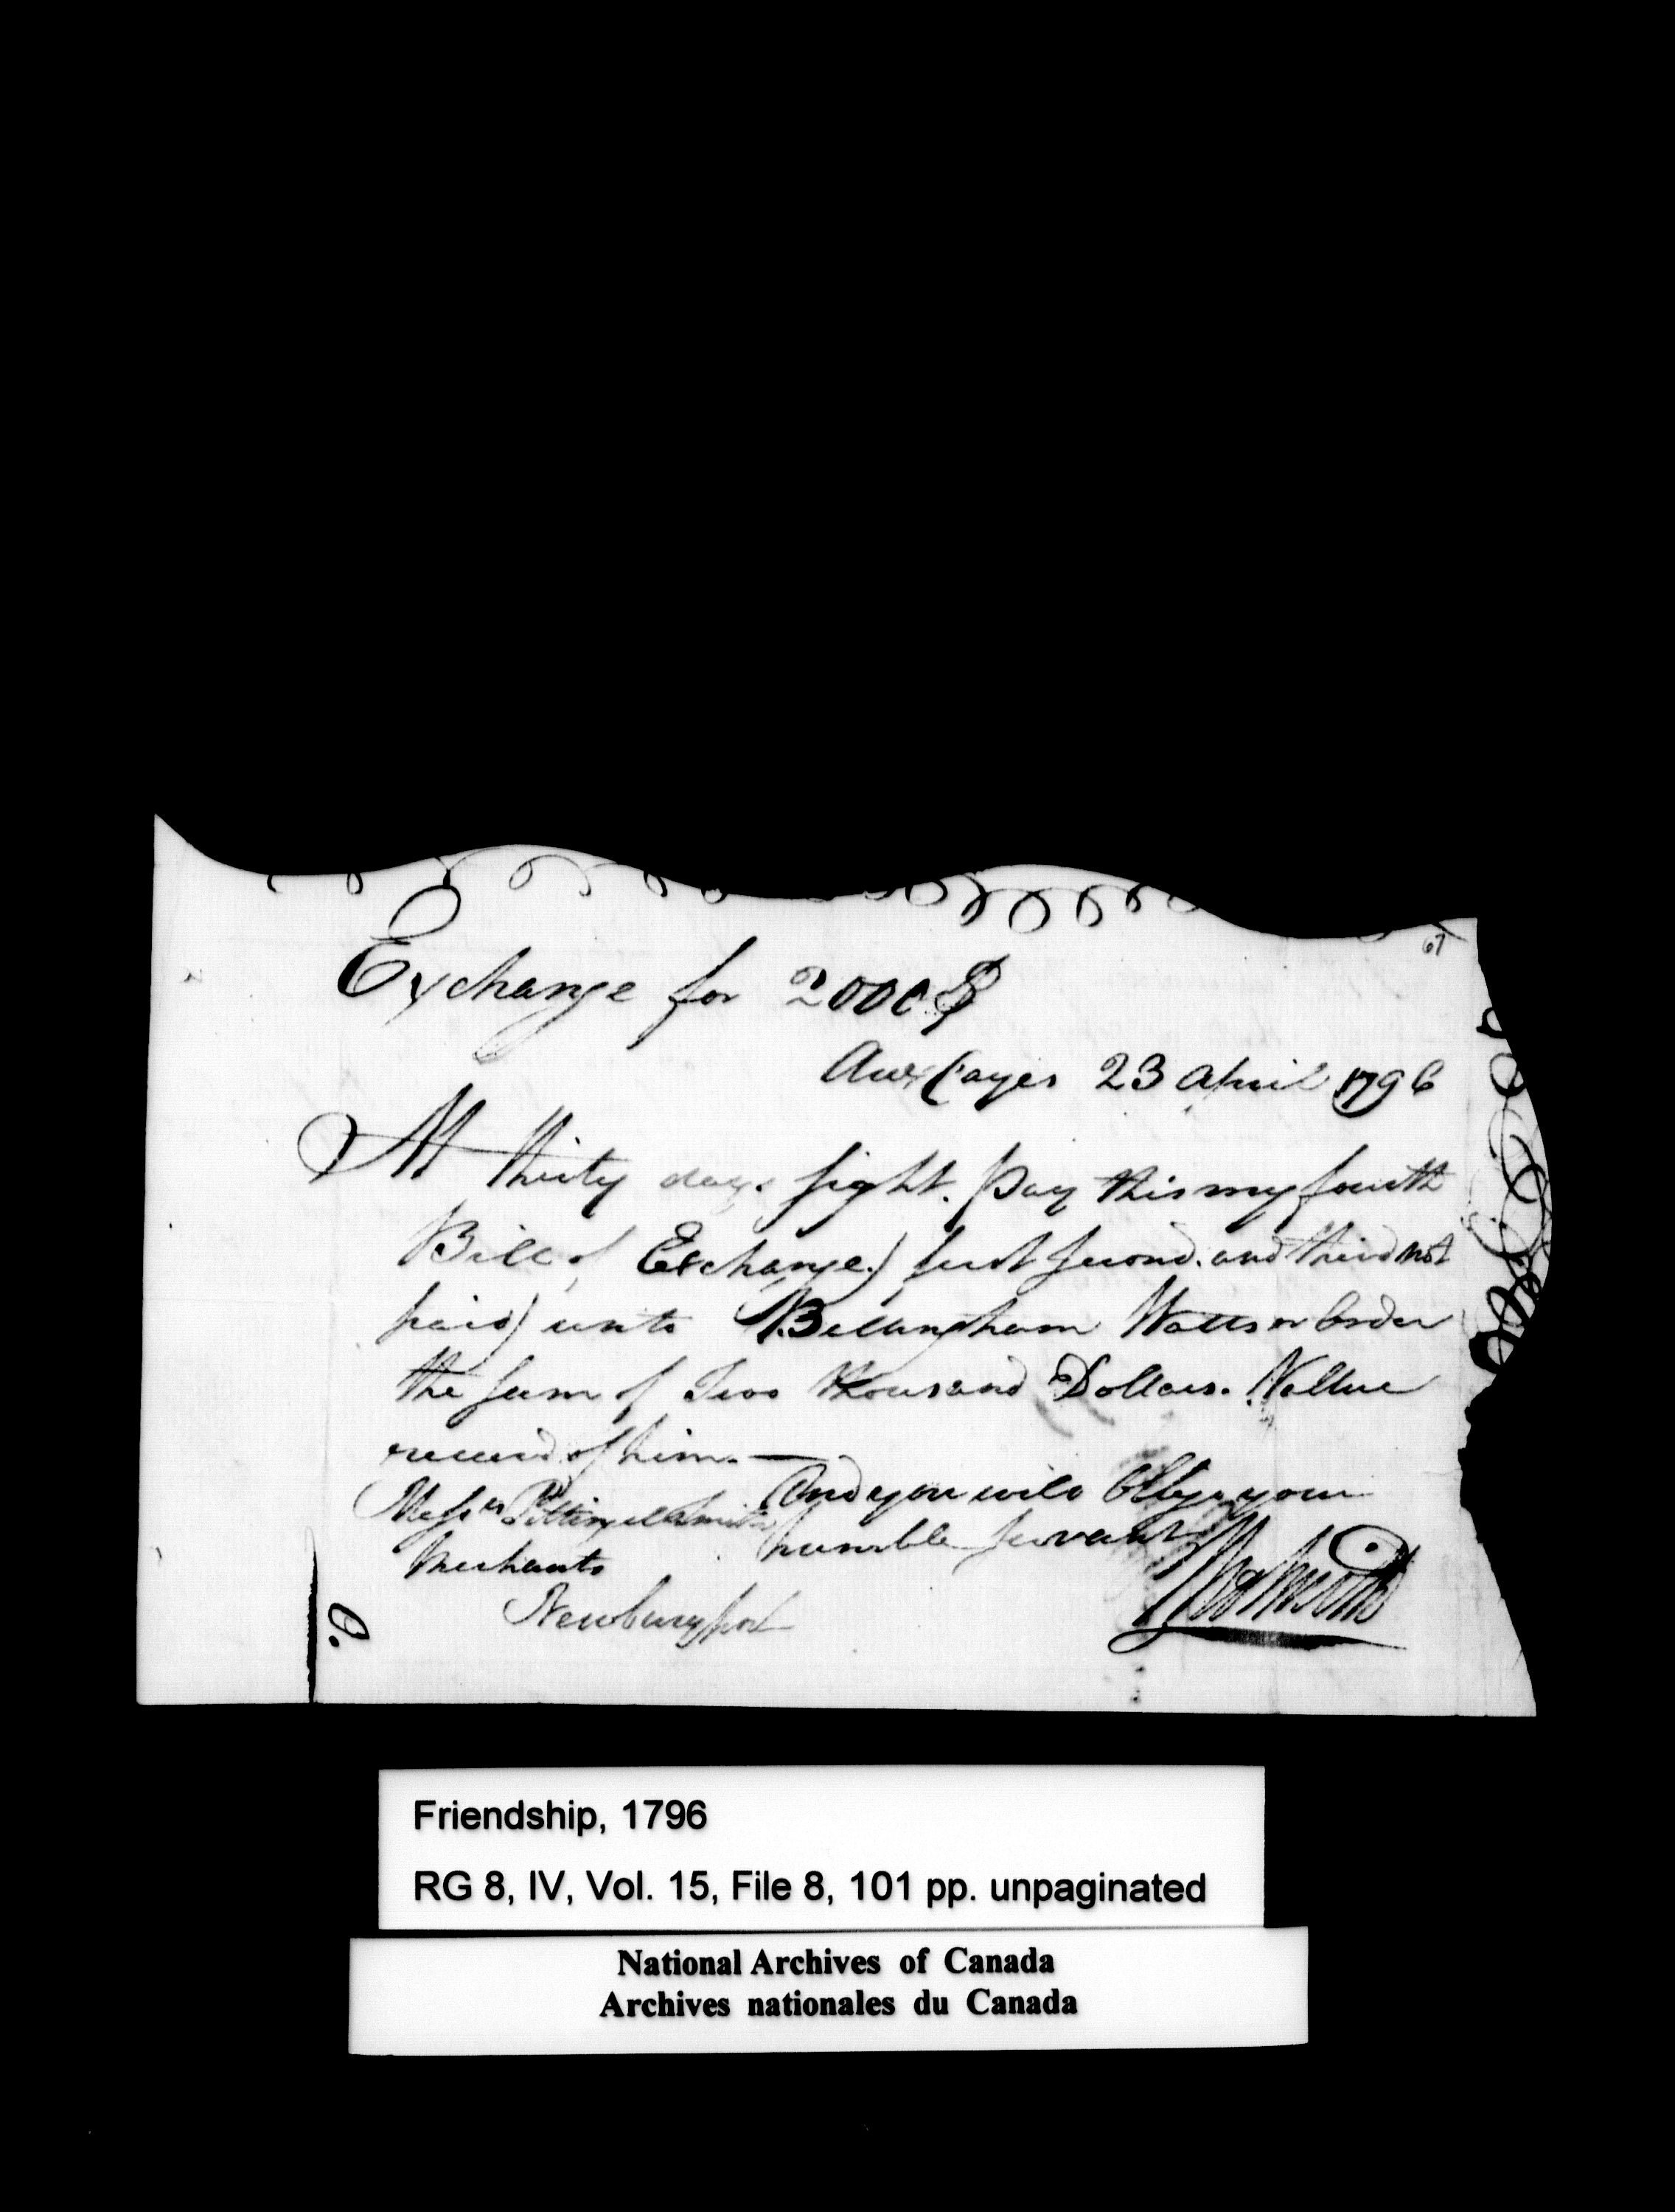 67
Exchange for 2000$
Aux Cayes 23 april 1796
At thirty days sight. Pay this my fourth
Bill of Exchange.) first second. and third not
paid) unto Bellingham Watts or Order
the sum of Two thousand Dollars. Vallue
receivd of him. —
And you will Oblige your
humble servant
Messrs Pettingell & Smith
Merchants
Newburyport
C.
Friendship, 1796
RG 8, IV, Vol. 15, File 8, 101 pp. unpaginated
National Archives of Canada
Archives nationales du Canada